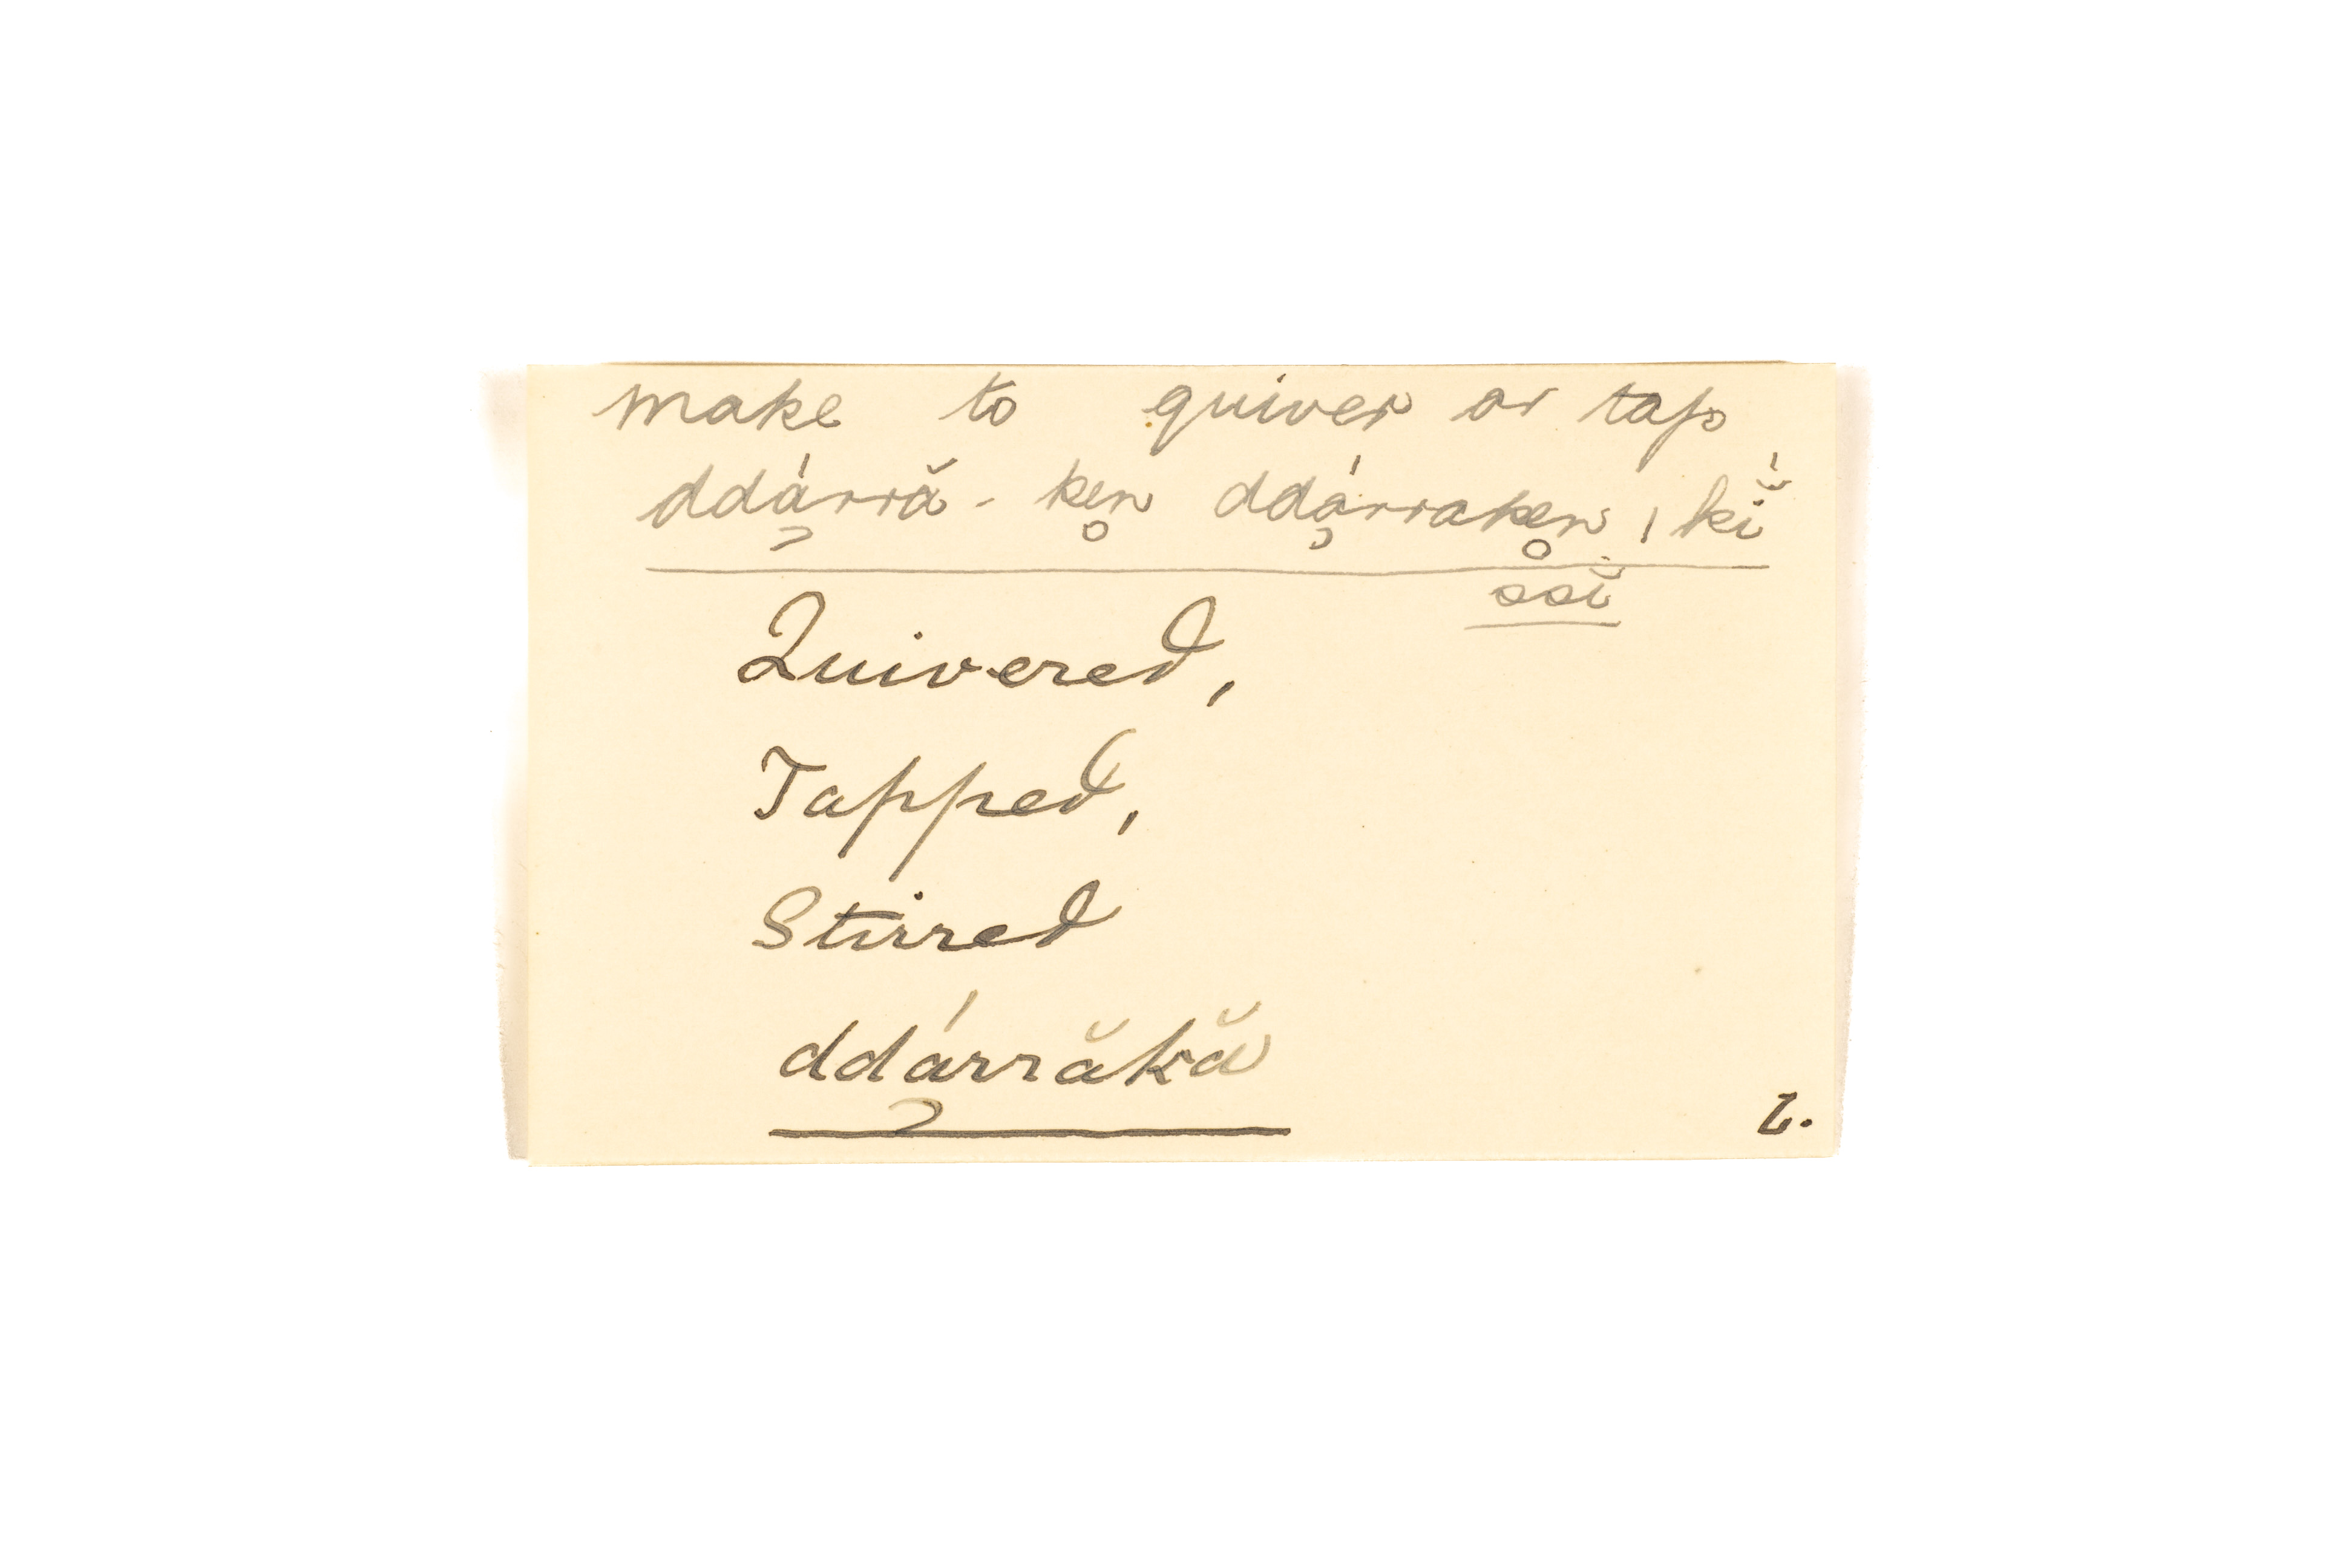 make to quiver or tap
ddá̧rră - ken̥ ddá̧rraken̥, kĭ́
ssĭ
Quivered,
Tapped,
Stirred
ddá̧rrăkă
L.